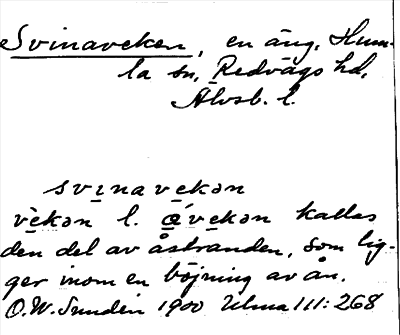 Svinaveken, en äng, Hum-
la sn, Redvägs hd,
Älvsb. l.
svinavekən
vèkən l. ǽvekən kallas
den del av åstranden, som lig-
ger inom en böjning av ån.
O.W. Sundén 1900 Ulma 111:268